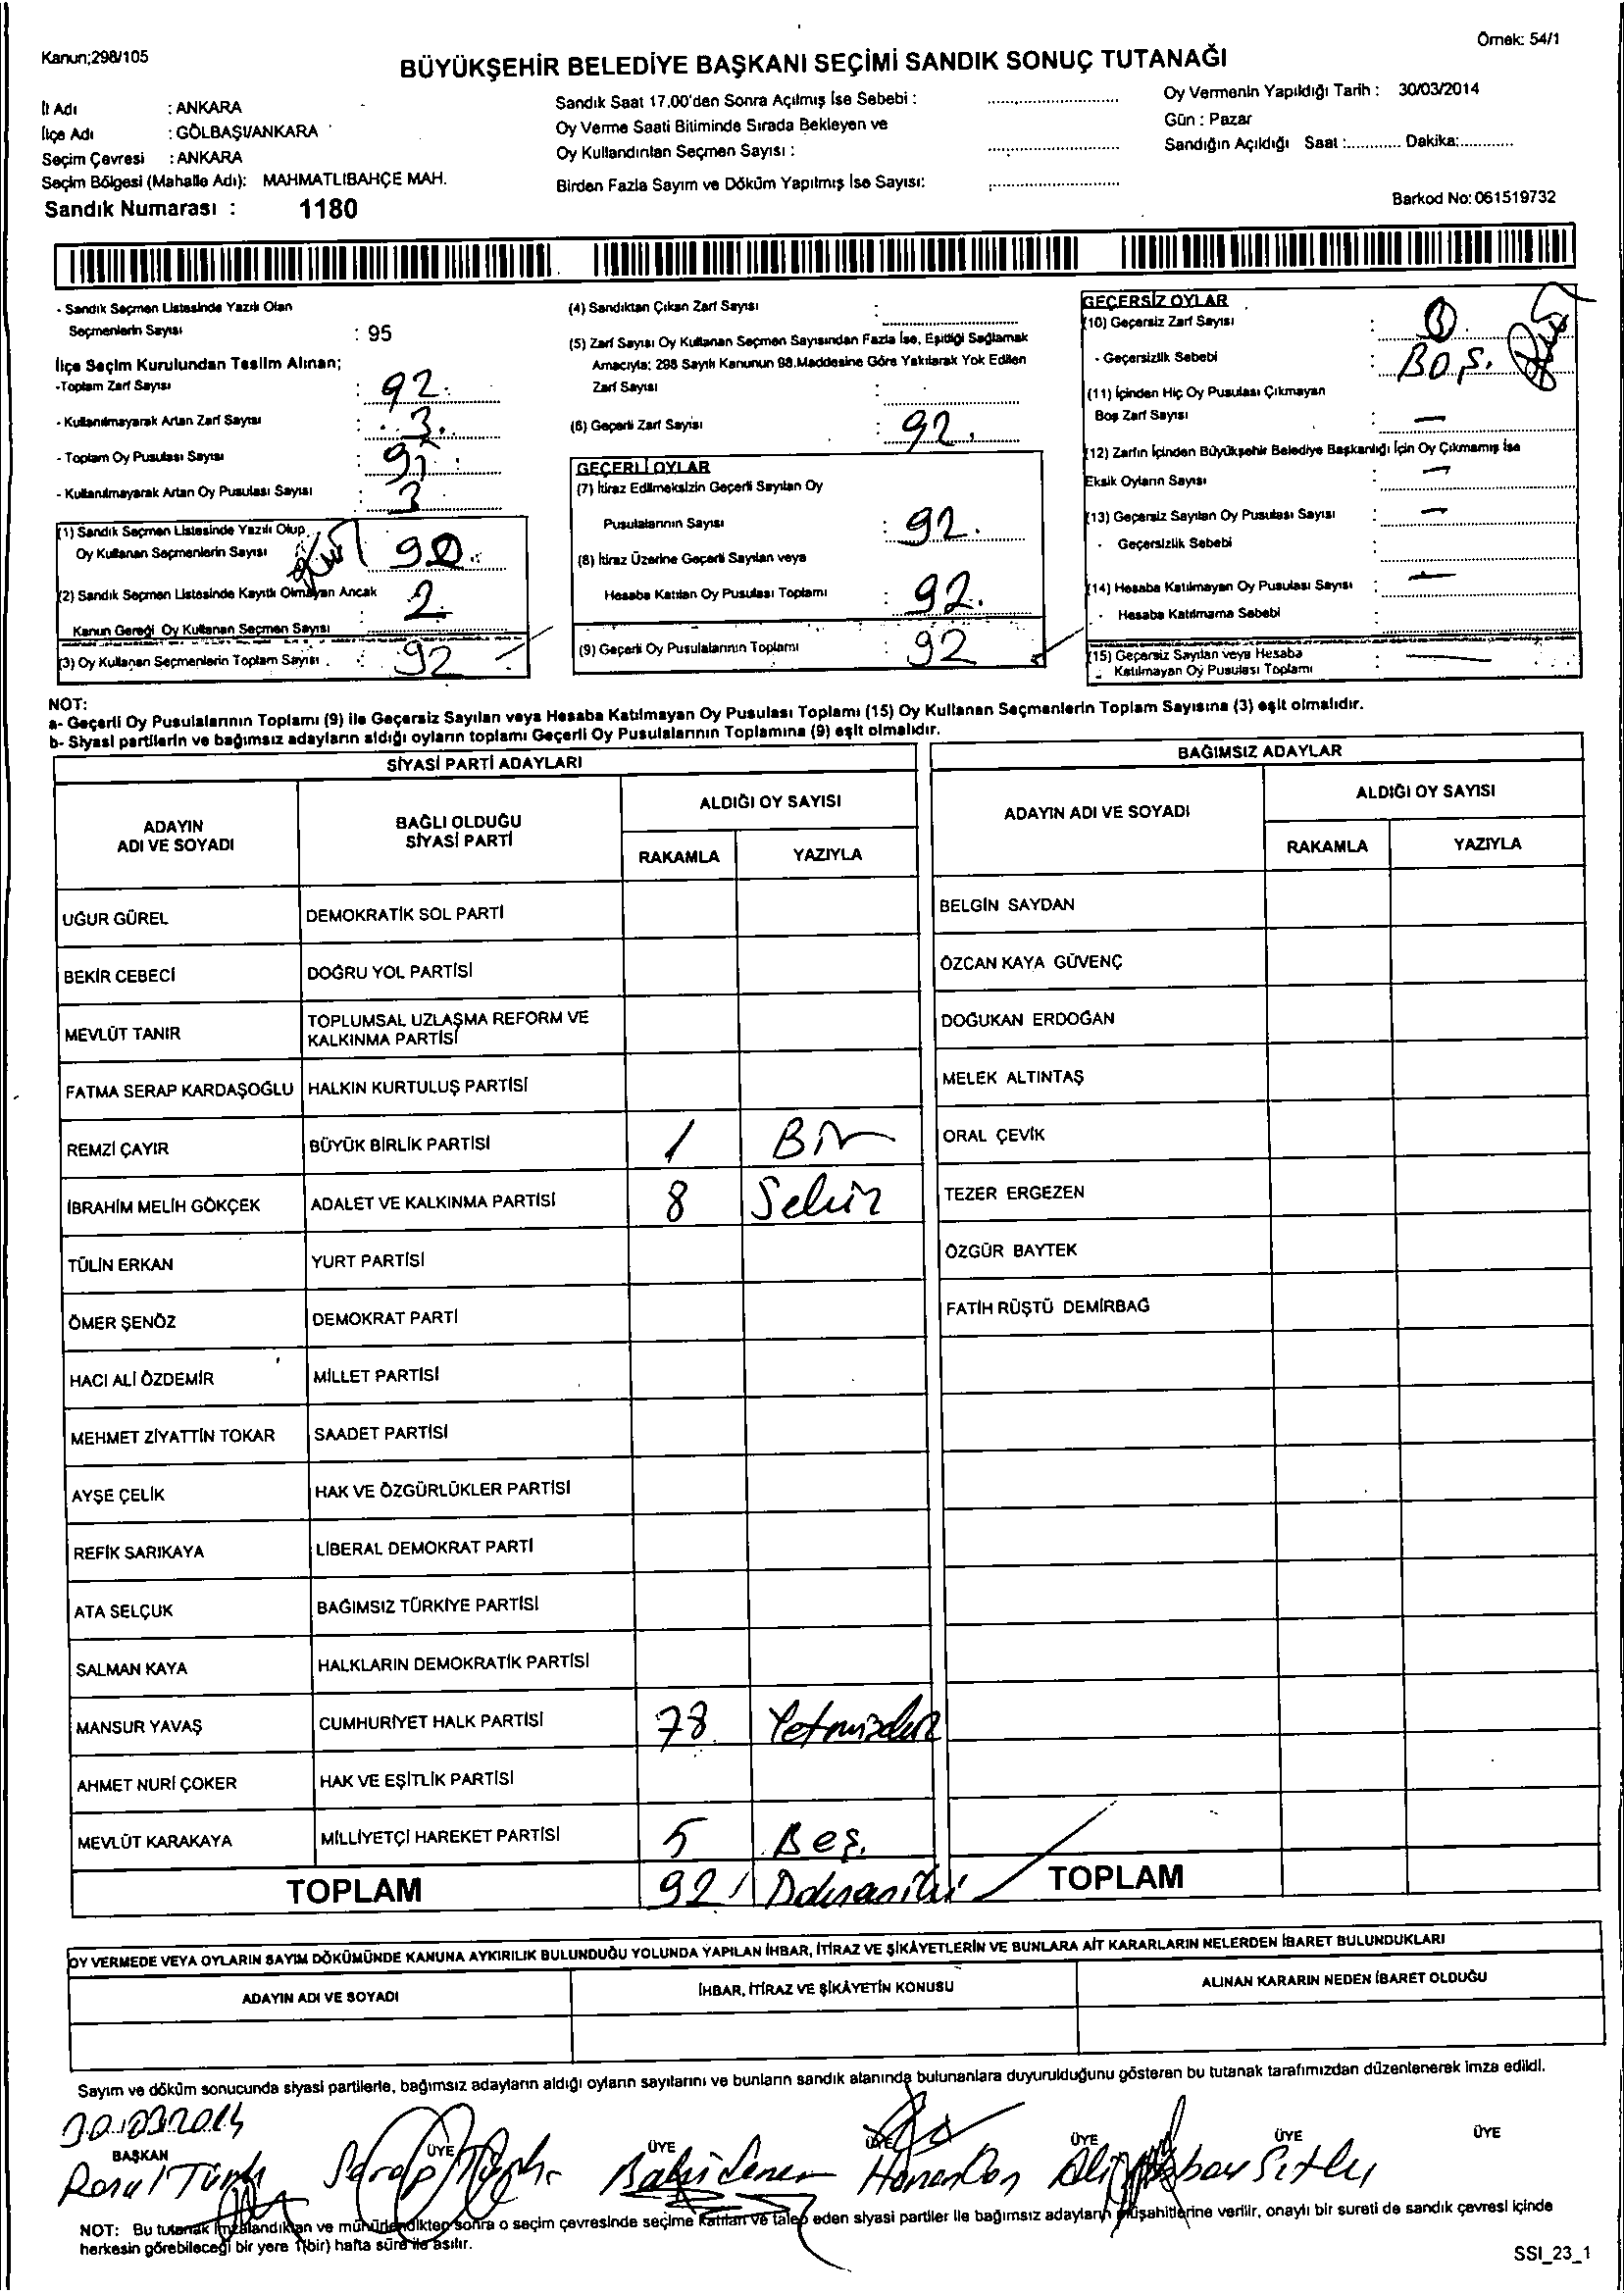 Kanun;298/105
Örnek: 54/1
BÜYÜKŞEHİR BELEDİYE BAŞKANI SEÇİMİ SANDIK SONUÇ TUTANAĞI
İl Adı : ANKARA
İlçe Adı : GÖLBAŞI/ANKARA
Seçim Çevresi : ANKARA
Seçim Bölgesi (Mahalle Adı): MAHMATLIBAHÇE MAH.
Sandık Numarası : 1180
Sandık Saat 17.00'den Sonra Açılmış İse Sebebi :
Oy Verme Saati Bitiminde Sırada Bekleyen ve
Oy Kullandırılan Seçmen Sayısı :
Birden Fazla Sayım ve Döküm Yapılmış İse Sayısı:
Oy Vermenin Yapıldığı Tarih : 30/03/2014
Gün : Pazar
Sandığın Açıldığı Saat :............ Dakika:............
Barkod No: 061519732
- Sandık Seçmen Listesinde Yazılı Olan
Seçmenlerin Sayısı : 95
İlçe Seçim Kurulundan Teslim Alınan;
-Toplam Zarf Sayısı : 92
- Kullanılmayarak Artan Zarf Sayısı : 3
- Toplam Oy Pusulası Sayısı :
- Kullanılmayarak Artan Oy Pusulası Sayısı : 3
(1) Sandık Seçmen Listesinde Yazılı Olup
Oy Kullanan Seçmenlerin Sayısı 90
(2) Sandık Seçmen Listesinde Kayıtlı Olmayan Ancak
Kanun Gereği Oy Kullanan Seçmen Sayısı : 2
(3) Oy Kullanan Seçmenlerin Toplam Sayısı : 92
(4) Sandıktan Çıkan Zarf Sayısı :
(5) Zarf Sayısı Oy Kullanan Seçmen Sayısından Fazla İse, Eşitliği Sağlamak
Amacıyla; 298 Sayılı Kanunun 98.Maddesine Göre Yakılarak Yok Edilen
Zarf Sayısı :
(6) Geçerli Zarf Sayısı : 92.
GEÇERLİ OYLAR
(7) İtiraz Edilmeksizin Geçerli Sayılan Oy
Pusulalarının Sayısı : 92.
(8) İtiraz Üzerine Geçerli Sayılan veya
Hesaba Katılan Oy Pusulası Toplamı : 92.
(9) Geçerli Oy Pusulalarının Toplamı : 92
GEÇERSİZ OYLAR
(10) Geçersiz Zarf Sayısı :
- Geçersizlik Sebebi : BOŞ.
(11) İçinden Hiç Oy Pusulası Çıkmayan
Boş Zarf Sayısı : —
(12) Zarfın İçinden Büyükşehir Belediye Başkanlığı İçin Oy Çıkmamış İse
Eksik Oyların Sayısı : —
(13) Geçersiz Sayılan Oy Pusulası Sayısı : —
- Geçersizlik Sebebi :
(14) Hesaba Katılmayan Oy Pusulası Sayısı : —
- Hesaba Katılmama Sebebi :
(15) Geçersiz Sayılan veya Hesaba
Katılmayan Oy Pusulası Toplamı : —
NOT:
a- Geçerli Oy Pusulalarının Toplamı (9) ile Geçersiz Sayılan veya Hesaba Katılmayan Oy Pusulası Toplamı (15) Oy Kullanan Seçmenlerin Toplam Sayısına (3) eşit olmalıdır.
b- Siyasi partilerin ve bağımsız adayların aldığı oyların toplamı Geçerli Oy Pusulalarının Toplamına (9) eşit olmalıdır.
SİYASİ PARTİ ADAYLARI
ADAYIN
ADI VE SOYADI
BAĞLI OLDUĞU
SİYASİ PARTİ
ALDIĞI OY SAYISI
RAKAMLA YAZIYLA
UĞUR GÜREL DEMOKRATİK SOL PARTİ
BEKİR CEBECİ DOĞRU YOL PARTİSİ
MEVLÜT TANIR TOPLUMSAL UZLAŞMA REFORM VE
KALKINMA PARTİSİ
FATMA SERAP KARDAŞOĞLU HALKIN KURTULUŞ PARTİSİ
REMZİ ÇAYIR BÜYÜK BİRLİK PARTİSİ 1 Bir
İBRAHİM MELİH GÖKÇEK ADALET VE KALKINMA PARTİSİ 8 Sekiz
TÜLİN ERKAN YURT PARTİSİ
ÖMER ŞENÖZ DEMOKRAT PARTİ
HACI ALİ ÖZDEMİR MİLLET PARTİSİ
MEHMET ZİYATTİN TOKAR SAADET PARTİSİ
AYŞE ÇELİK HAK VE ÖZGÜRLÜKLER PARTİSİ
REFİK SARIKAYA LİBERAL DEMOKRAT PARTİ
ATA SELÇUK BAĞIMSIZ TÜRKİYE PARTİSİ
SALMAN KAYA HALKLARIN DEMOKRATİK PARTİSİ
MANSUR YAVAŞ CUMHURİYET HALK PARTİSİ 78
AHMET NURİ ÇOKER HAK VE EŞİTLİK PARTİSİ
MEVLÜT KARAKAYA MİLLİYETÇİ HAREKET PARTİSİ 5 Beş.
TOPLAM 92 Doksaniki
BAĞIMSIZ ADAYLAR
ADAYIN ADI VE SOYADI
ALDIĞI OY SAYISI
RAKAMLA YAZIYLA
BELGİN SAYDAN
ÖZCAN KAYA GÜVENÇ
DOĞUKAN ERDOĞAN
MELEK ALTINTAŞ
ORAL ÇEVİK
TEZER ERGEZEN
ÖZGÜR BAYTEK
FATİH RÜŞTÜ DEMİRBAĞ
TOPLAM
OY VERMEDE VEYA OYLARIN SAYIM DÖKÜMÜNDE KANUNA AYKIRILIK BULUNDUĞU YOLUNDA YAPILAN İHBAR, İTİRAZ VE ŞİKÂYETLERİN VE BUNLARA AİT KARARLARIN NELERDEN İBARET BULUNDUKLARI
ADAYIN ADI VE SOYADI İHBAR, İTİRAZ VE ŞİKÂYETİN KONUSU ALINAN KARARIN NEDEN İBARET OLDUĞU
Sayım ve döküm sonucunda siyasi partilerle, bağımsız adayların aldığı oyların sayılarını ve bunların sandık alanında bulunanlara duyurulduğunu gösteren bu tutanak tarafımızdan düzenlenerek imza edildi.
30.03.2014
BAŞKAN ÜYE ÜYE ÜYE ÜYE ÜYE ÜYE
NOT: Bu tutanak imzalandıktan ve mühürlendikten sonra o seçim çevresinde seçime katılan ve talep eden siyasi partiler ile bağımsız adayların müşahitlerine verilir, onaylı bir sureti de sandık çevresi içinde
herkesin görebileceği bir yere 1(bir) hafta süre ile asılır.
SSI_23_1